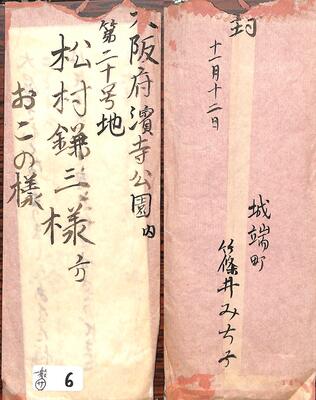 大阪府濱寺公園内
第二十号地
松村鎌三様方
おこの様
6
封
十一月十二日
城端町
篠井みち子